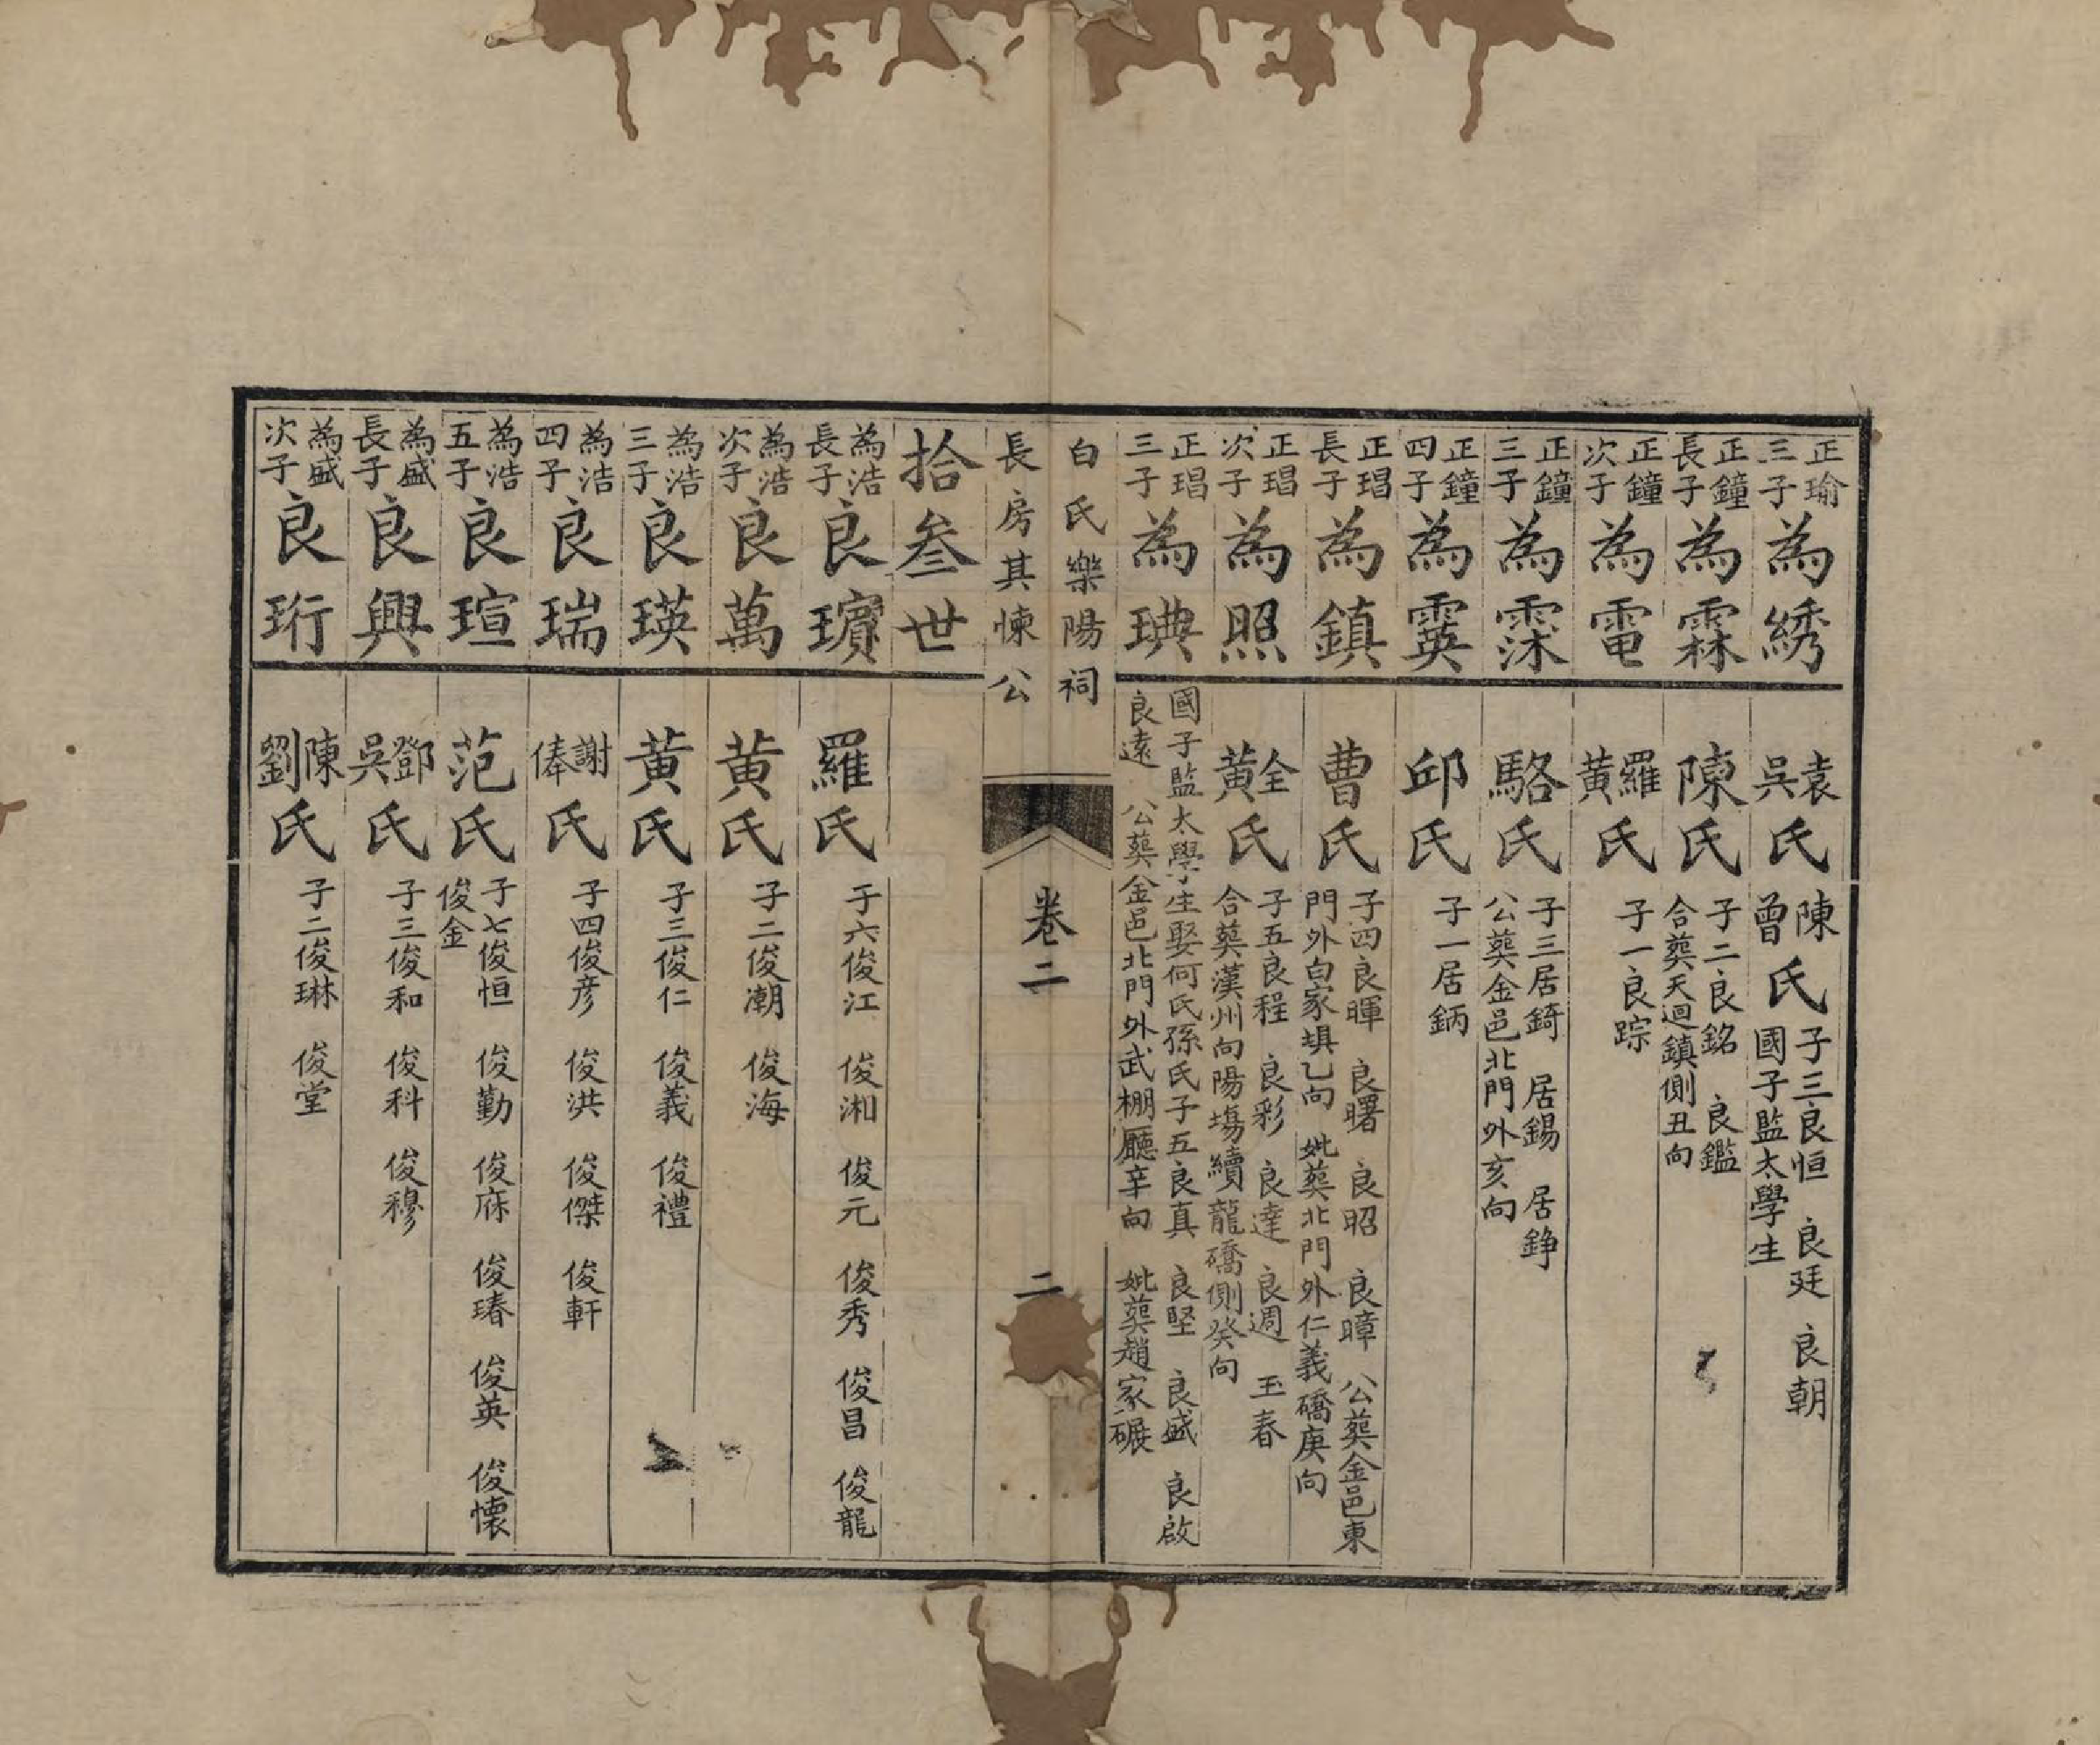 正瑜三子 為綉 袁吳氏 陳曾氏 子三良恒 良廷 良朝
國子監太學生
正鐘長子 為霖 陳氏 子二良銘 良鑑
合葬天迴鎮側丑向
正鐘次子 為電 羅黃氏 子一良踪
正鐘三子 為霂 駱氏 子三居錡 居錫 居錚
公葬金邑北門外亥向
正鐘四子 為霙 邱氏 子一居鈵
正琩長子 為鎮 曹氏 子四良暉 良曙 良昭 良暲 公葬金邑東
門外白家埧乙向 妣葬北門外仁義礄庚向
正琩次子 為照 全黃氏 子五良程 良彩 良達 良週 玉春
合葬漢州向陽塲續龍礄側癸向
正琩三子 為琠 國子監太學生娶何氏孫氏子五良真 良堅 良盛 良啟
良遠 公葬金邑北門外武棚廳辛向 妣葬趙家碾
白氏樂陽祠
長房其悚公
卷二
二
拾叁世
為浩長子 良璸 羅氏 子六俊江 俊湘 俊元 俊秀 俊昌 俊龍
為浩次子 良萬 黃氏 子二俊潮 俊海
為浩三子 良瑛 黃氏 子三俊仁 俊義 俊禮
為浩四子 良瑞 謝俸氏 子四俊彦 俊洪 俊傑 俊軒
為浩五子 良瑄 范氏 子七俊恒 俊勤 俊庥 俊瑃 俊英 俊懷
俊金
為盛長子 良興 鄧吳氏 子三俊和 俊科 俊穆
為盛次子 良珩 陳劉氏 子二俊琳 俊堂